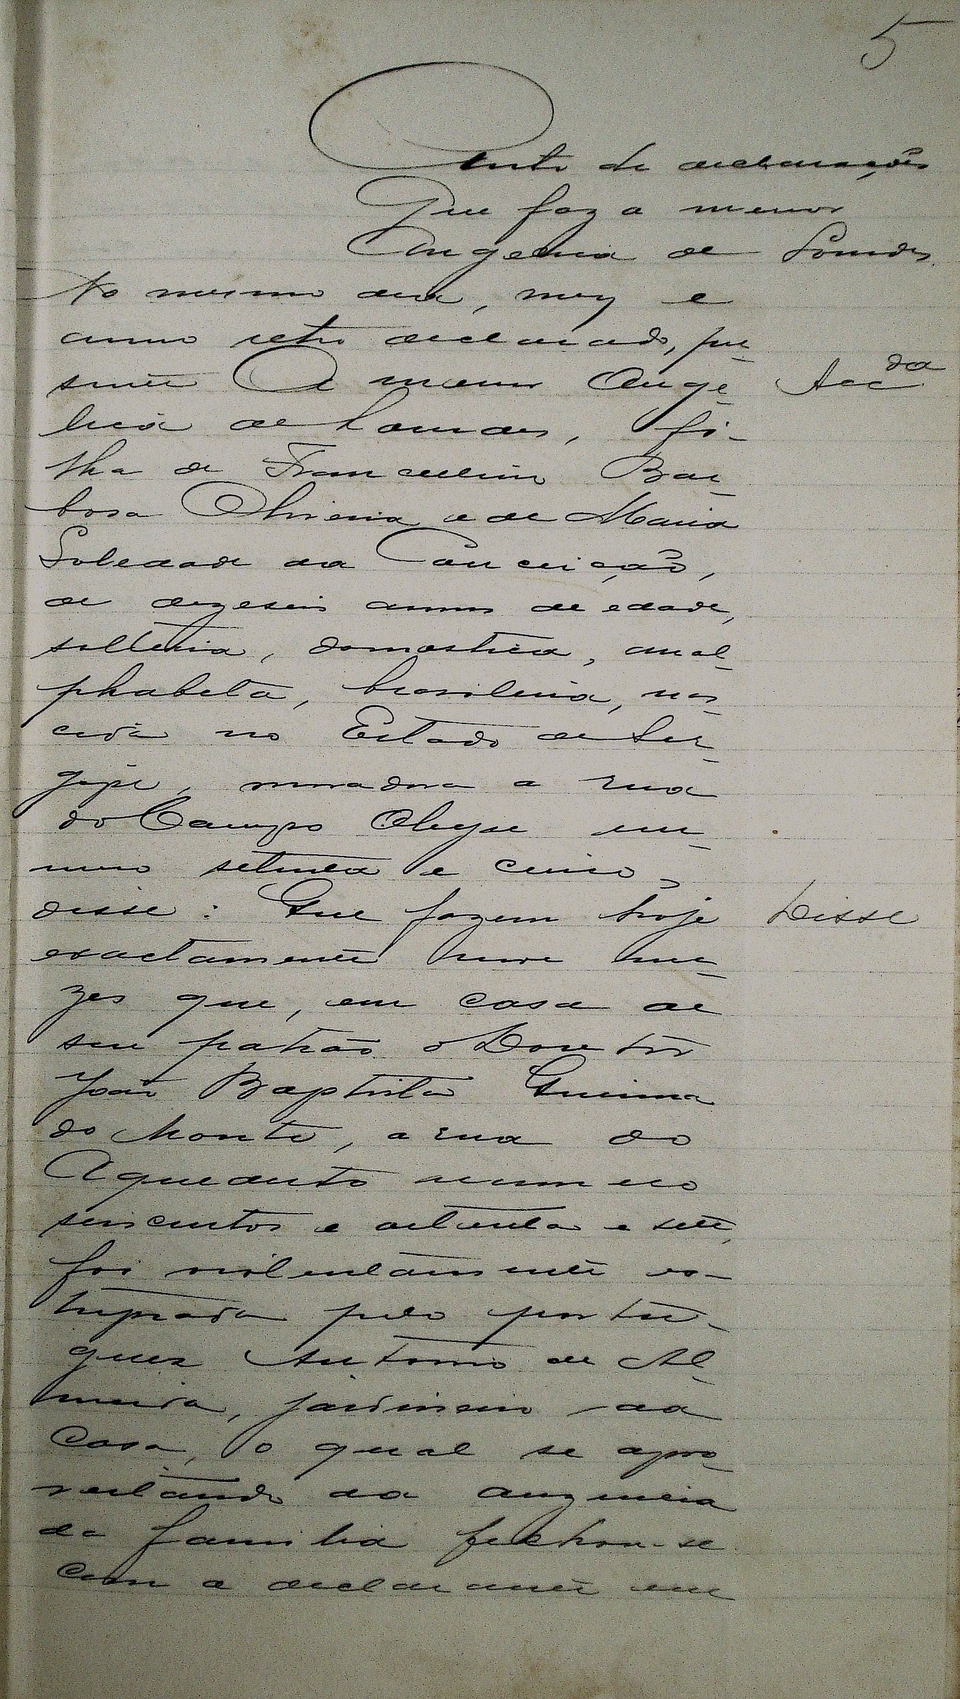 5
Auto de declarações
Que faz a menor
Angelica de Lourdes.
No mesmo dia, mez e
anno retro declarado, pre-
sente A menor Ange-
lica de Lourdes, fi-
lha de Francellino Bar-
bosa Oliveira e de Maria
Soledade da Conceição,
de dezeseis annos de edade,
solteira, domestica, anal-
phabeta, brasileira, nas-
cida no Estado de Ser-
gipe, moradora a rua
do Campo Alegre nu-
mero setenta e cinco,
disse: Que fazem hoje
Disse
exactamente nove me-
zes que, em casa de
seu patrão o Doutor
João Baptista
do Monte, a rua do
Aqueducto numero
seiscentos e oitenta e sete,
foi violentamente es-
tuprada pelo portu-
guez Antonio de Al-
meida, jardineiro da
Casa, o qual se apro-
veitando da auzencia
da familia fechou-se
com a declarante em